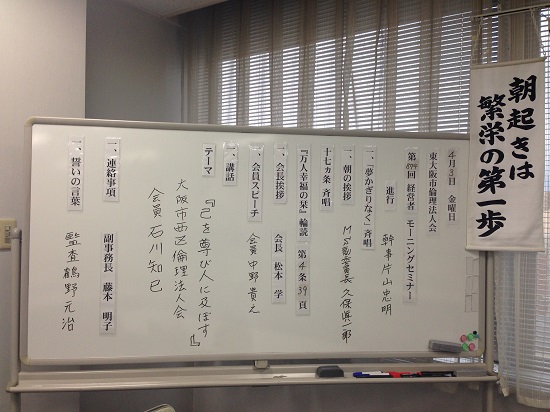 朝起きは
繁栄の第一歩
4月3日　金曜日
東大阪市倫理法人会
経営者　モーニングセミナー
進行　幹事 片山忠明
一、『夢かぎりなく』斉唱
一、朝の挨拶
十七ヵ条　斉唱
『万人幸福の栞』輪読　第4条39頁
一、会長挨拶　会長　松本　学
一、会員スピーチ　会員 中野貴之
一、講話
テーマ　『己を尊び人に及ぼす』
大阪市西区倫理法人会
会員 石川知巳
一、連絡事項　副事務長　藤本　明子
一、誓いの言葉　監査 鶴野元治